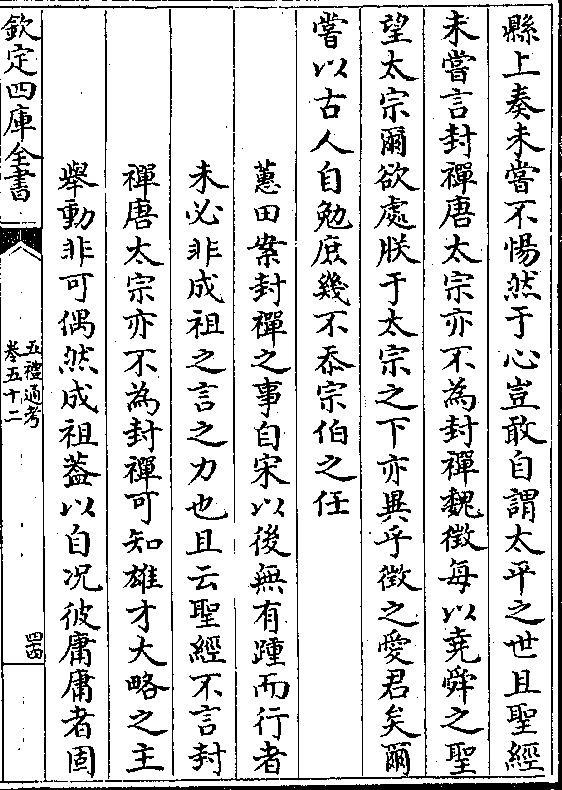 縣上奏未嘗不惕然于心豈敢自謂太平之世且聖經
未嘗言封禪唐太宗亦不為封禪魏徵每以堯舜之聖
望太宗爾欲處朕于太宗之下亦異乎徵之愛君矣爾
嘗以古人自勉庶幾不忝宗伯之任
蕙田案封禪之事自宋以後無有踵而行者
未必非成祖之言之力也且云聖經不言封
禪唐太宗亦不為封禪可知雄才大略之主
舉動非可偶然成祖葢以自况彼庸庸者固
欽定四庫全書
五禮通考
卷五十二
四四